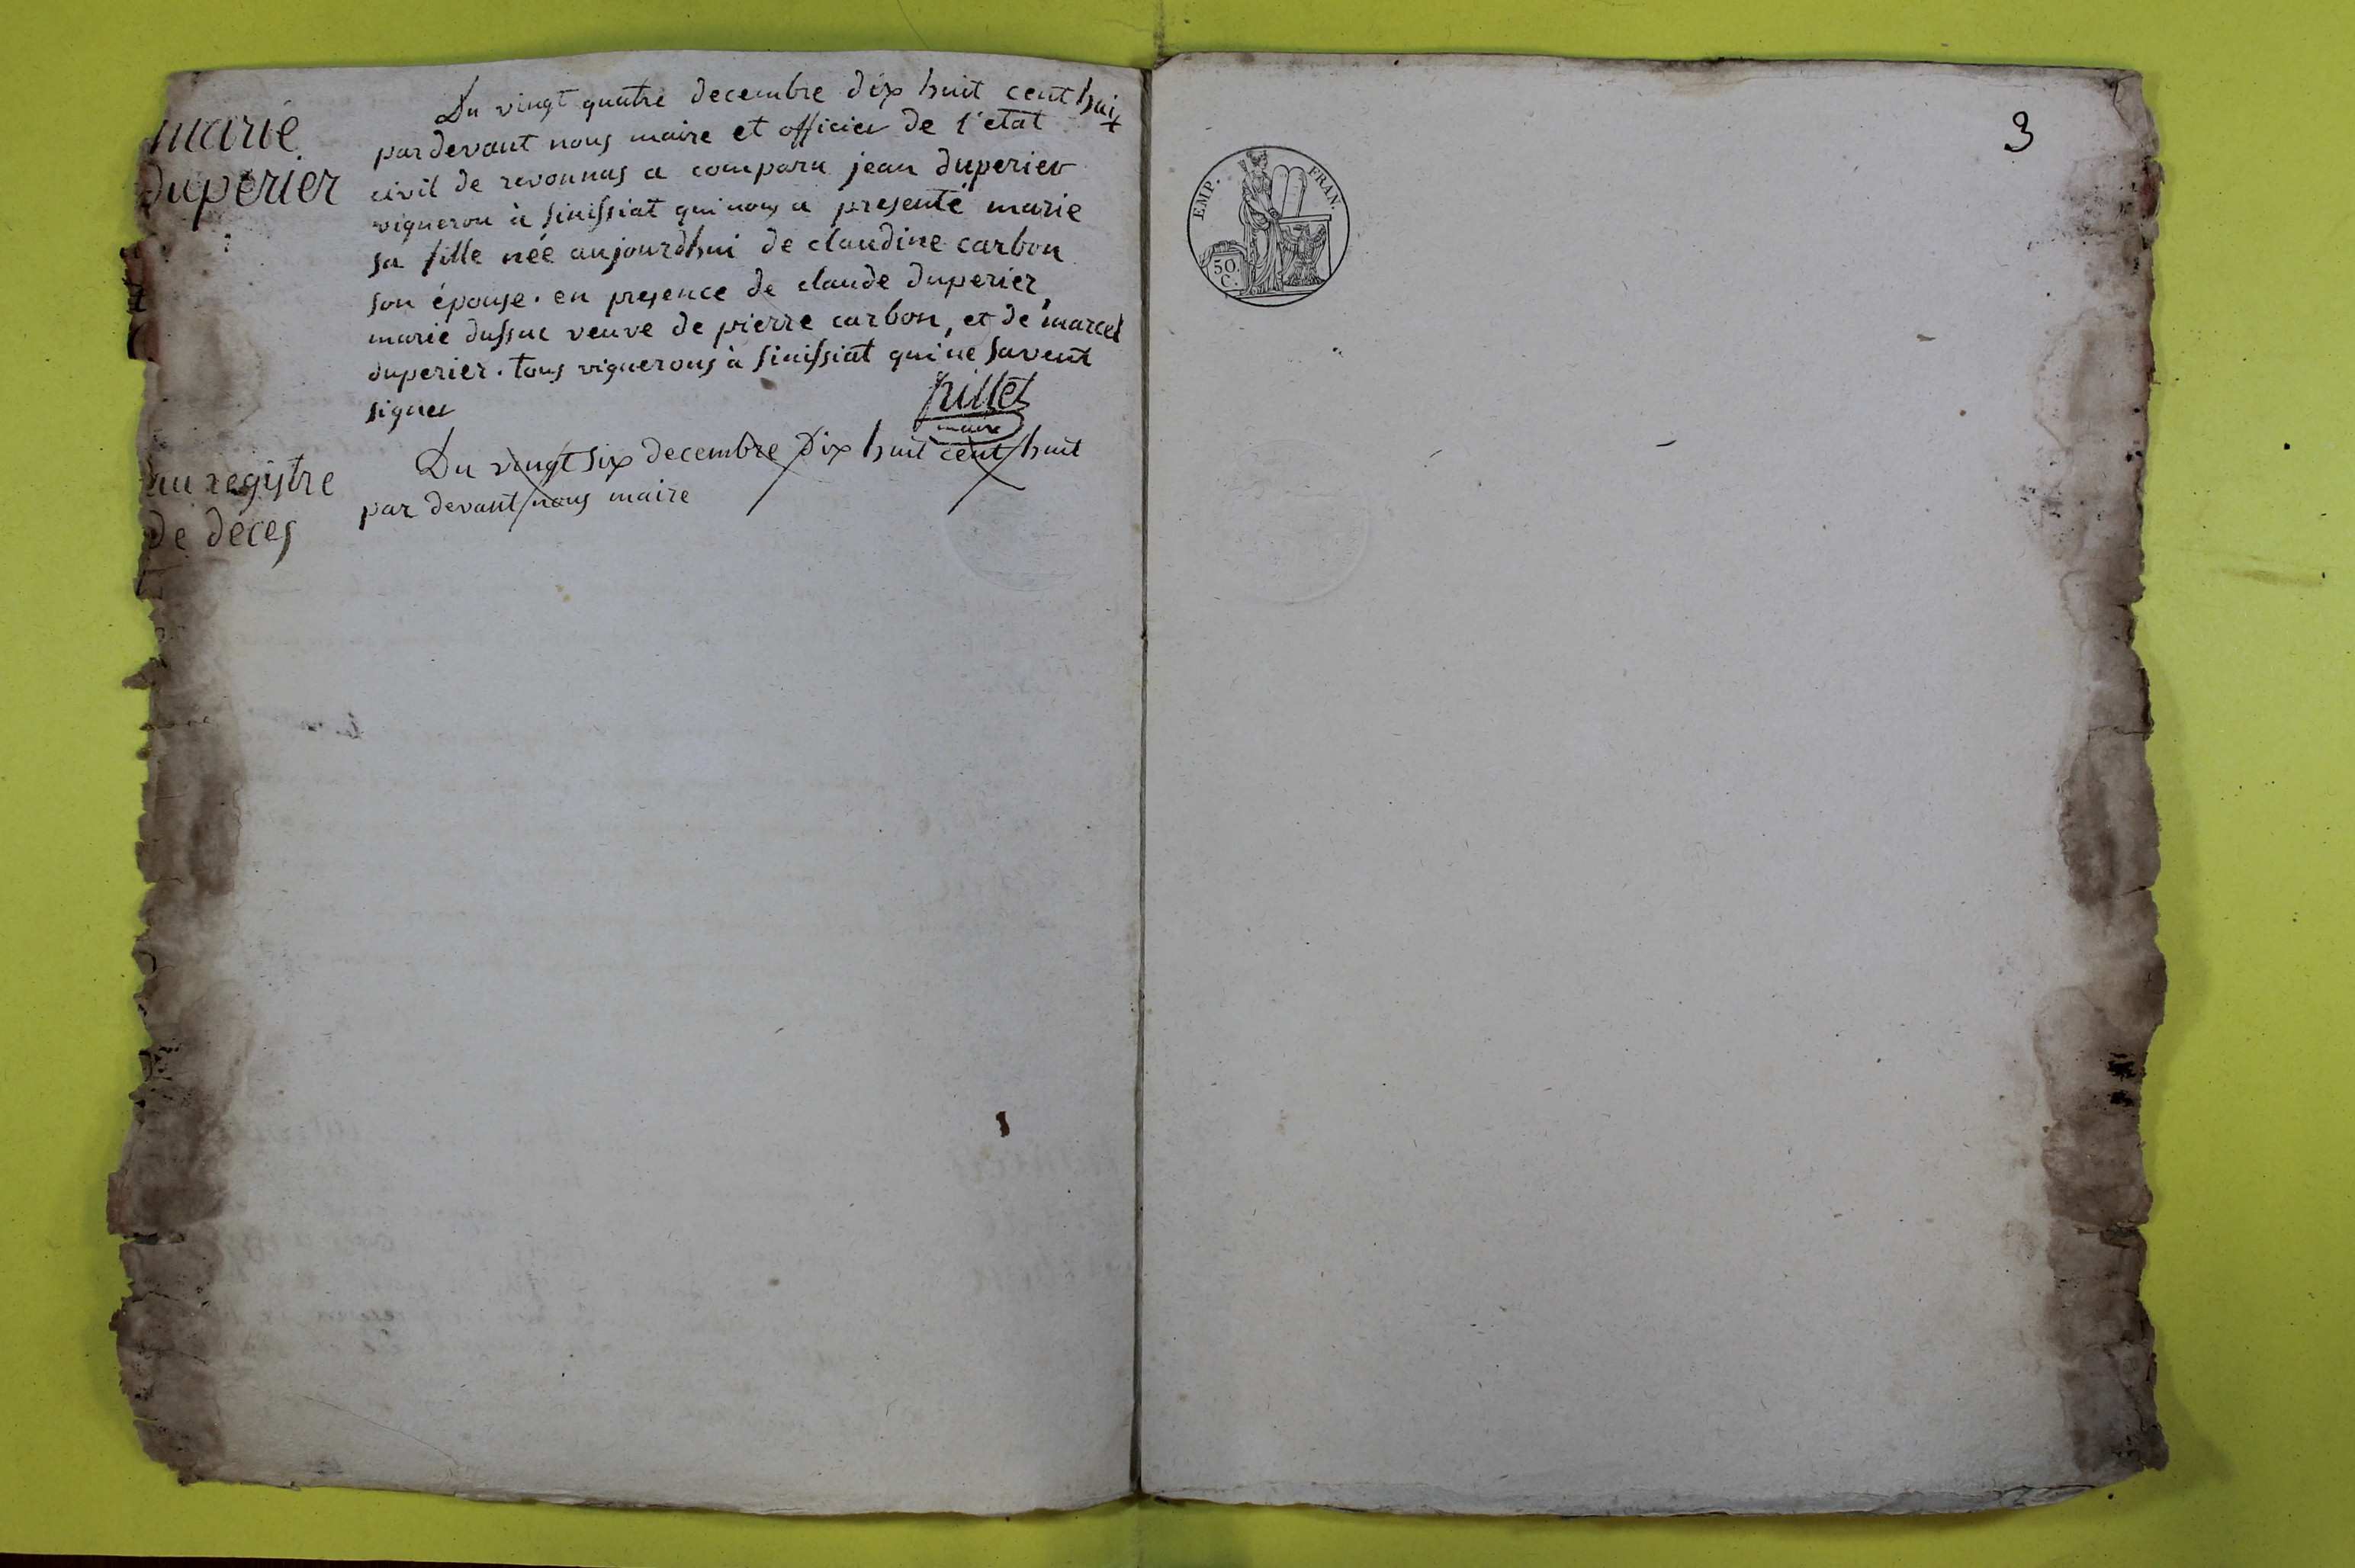 marie
duperier
Du vingt quatre decembre dix huit cent huit
par devant nous maire et officier de l'etat
civil de revonnas a comparu jean duperier
vigneron à sinissiat qui nous a presenté marie
sa fille née aujourdhui de claudine carbon
son épouse. en presence de claude duperier,
marie dussuc veuve de pierre carbon, et de marcel
duperier. tous vignerons à sinissiat qui ne savent
signer
pillet
maire
au registre
de deces
Du vingt six decembre dix huit cent huit
par devant nous maire
3
EMP. FRAN.
50.
C.